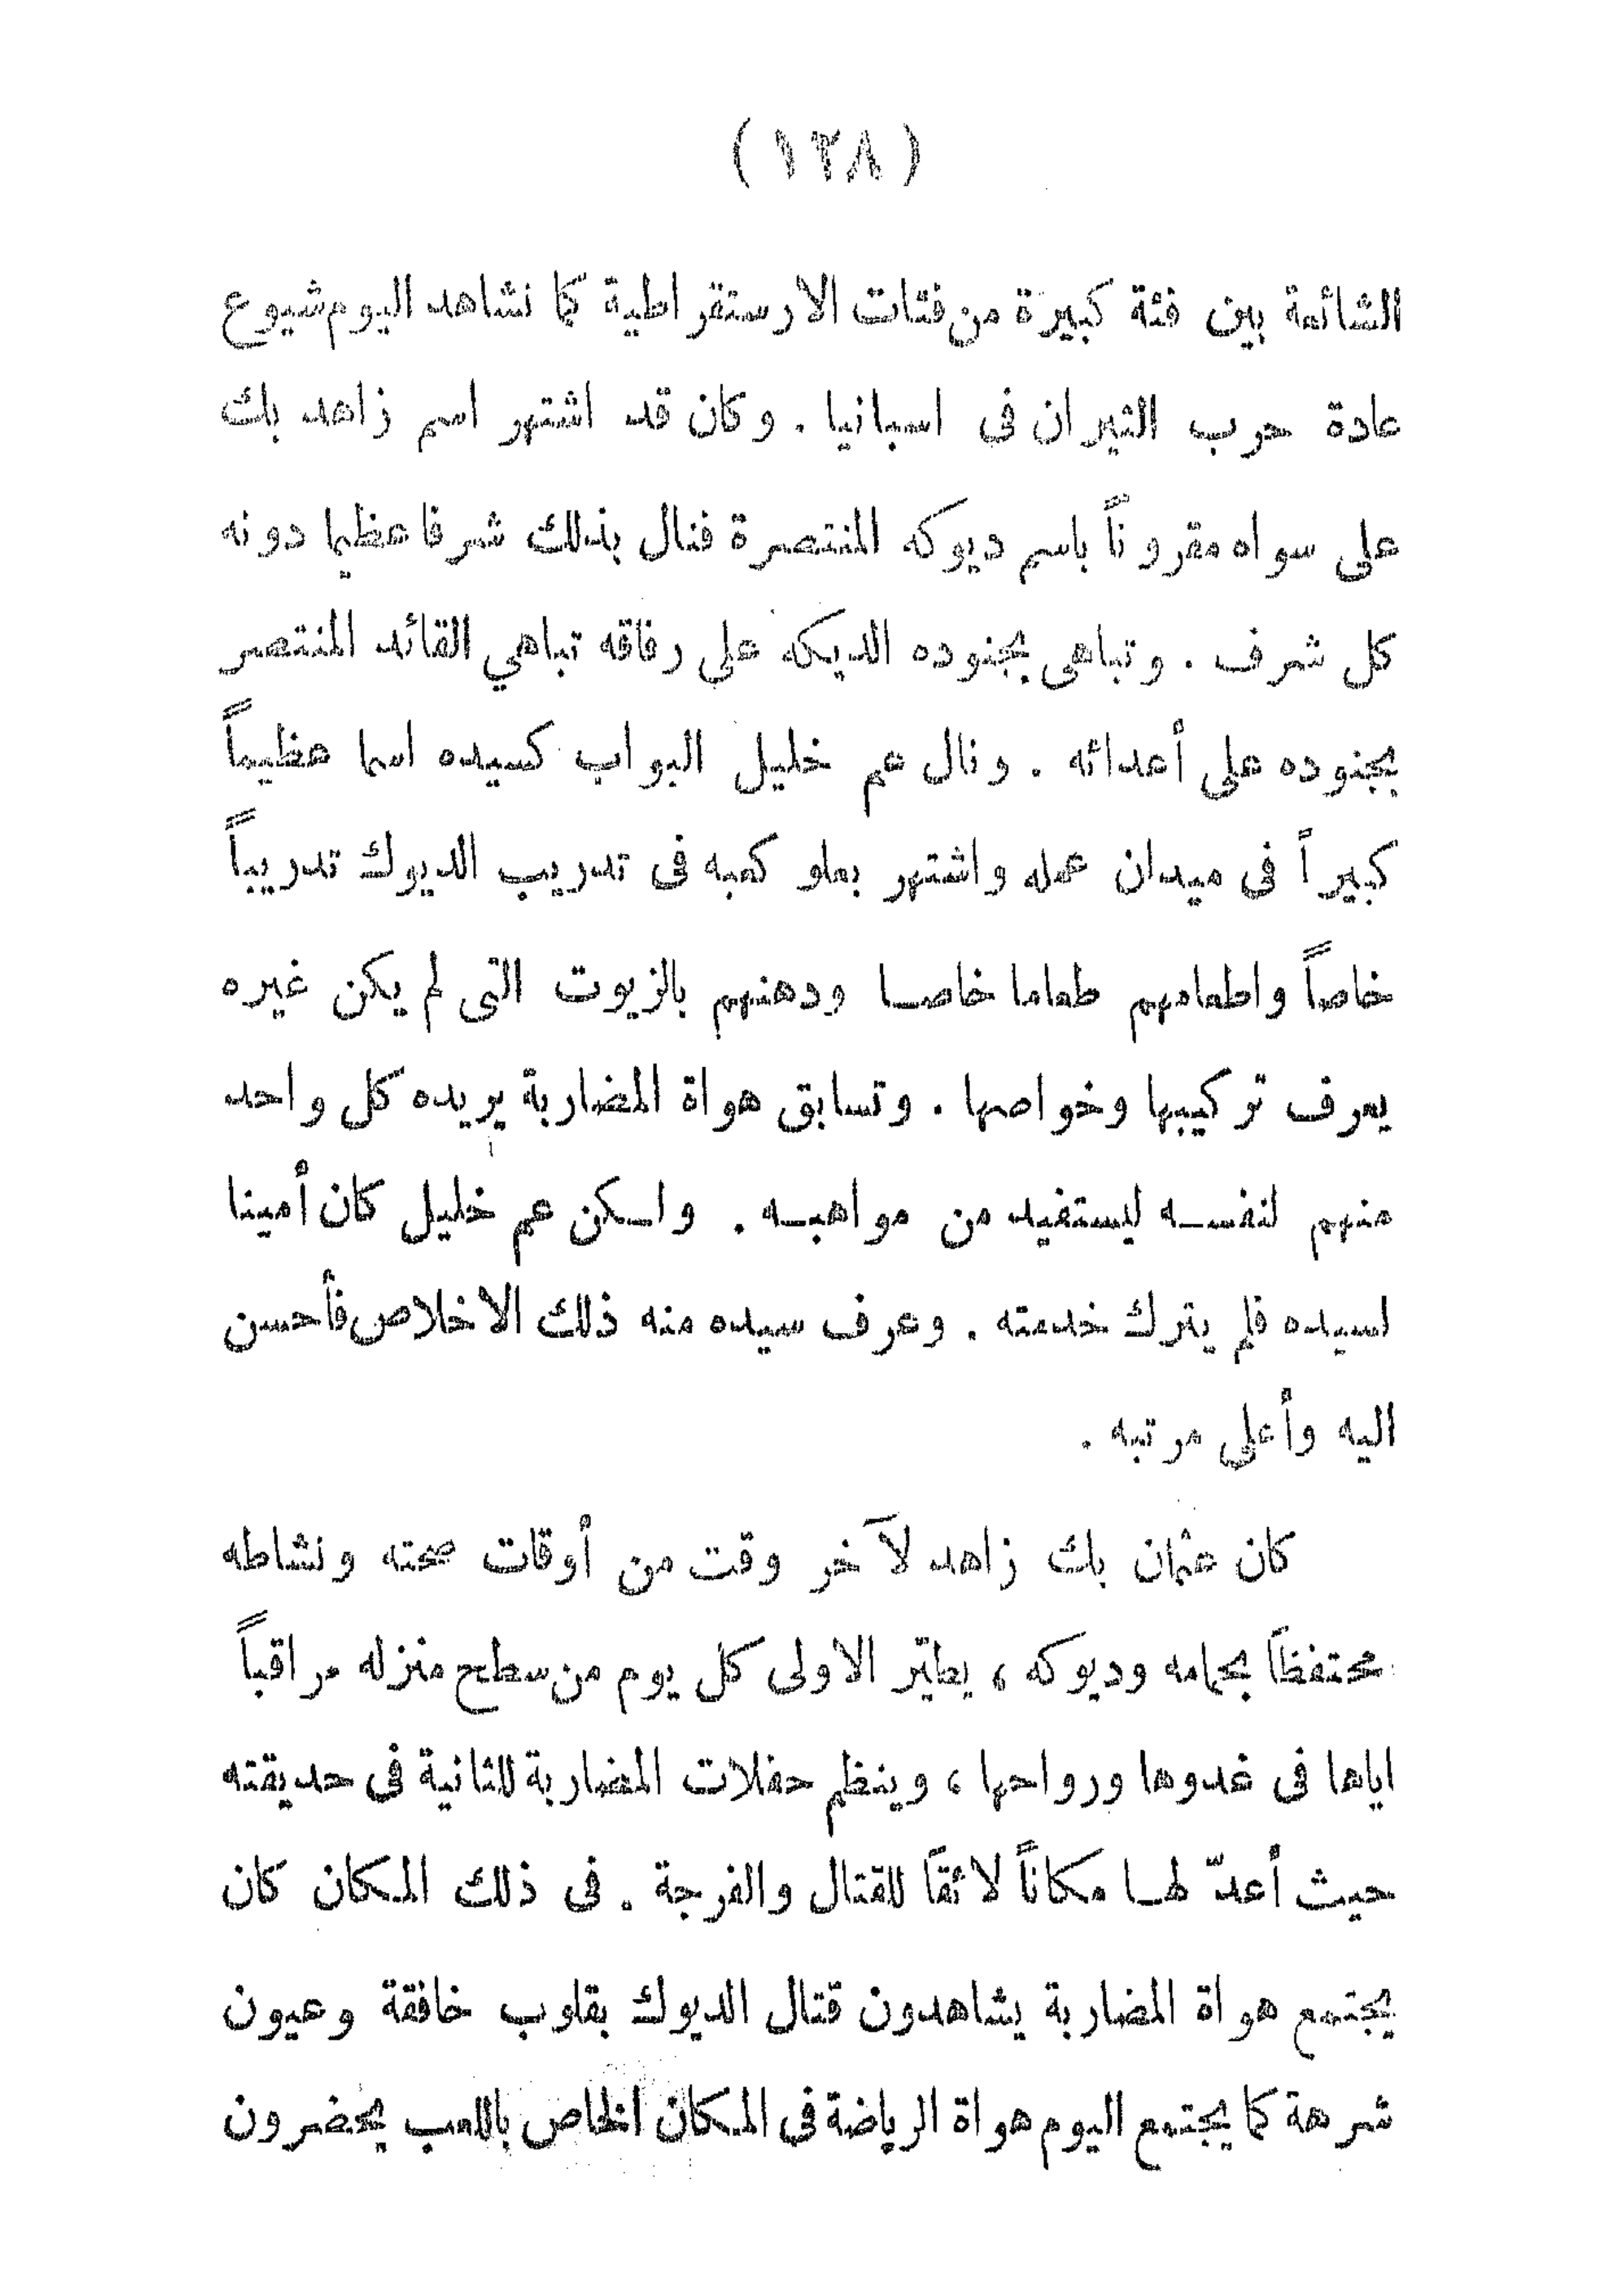 (١٢٨)
الشائعة بين فئة كبيرة من فئات الارستقراطية كما نشاهد اليوم شيوع
عادة حرب الثيران فى اسبانيا . وكان قد اشتهر اسم زاهد بك
على سواه مقروناً باسم ديوكه المنتصرة فنال بذلك شرفا عظيما دونه
كل شرف . وتباهى بجنوده الديكه على رفاقه تباهي القائد المنتصر
بجنوده على أعدائه . ونال عم خليل البواب كسيده اسما عظيماً
كبيراً فى ميدان عمله واشتهر بعلو كعبه فى تدريب الديوك تدريباً
خاصاً واطعامهم طعاما خاصا ودهنهم بالزيوت التى لم يكن غيره
يعرف تركيبها وخواصها . وتسابق هواة المضاربة يريده كل واحد
منهم لنفسه ليستفيد من مواهبه . ولكن عم خليل كان أمينا
لسيده فلم يترك خدمته . وعرف سيده منه ذلك الاخلاص فأحسن
اليه وأعلى مرتبه .
كان عثمان بك زاهد لآخر وقت من أوقات صحته ونشاطه
محتفظاً بحمامه وديوكه ، يطيّر الاولى كل يوم من سطح منزله مراقباً
اياها فى غدوها ورواحها ، وينظم حفلات المضاربة للثانية فى حديقته
حيث أعدّ لها مكاناً لائقاً للقتال والفرجة . فى ذلك المكان كان
يجتمع هواة المضاربة يشاهدون قتال الديوك بقلوب خافقة وعيون
شرهة كما يجتمع اليوم هواة الرياضة فى المكان الخاص باللعب يحضرون